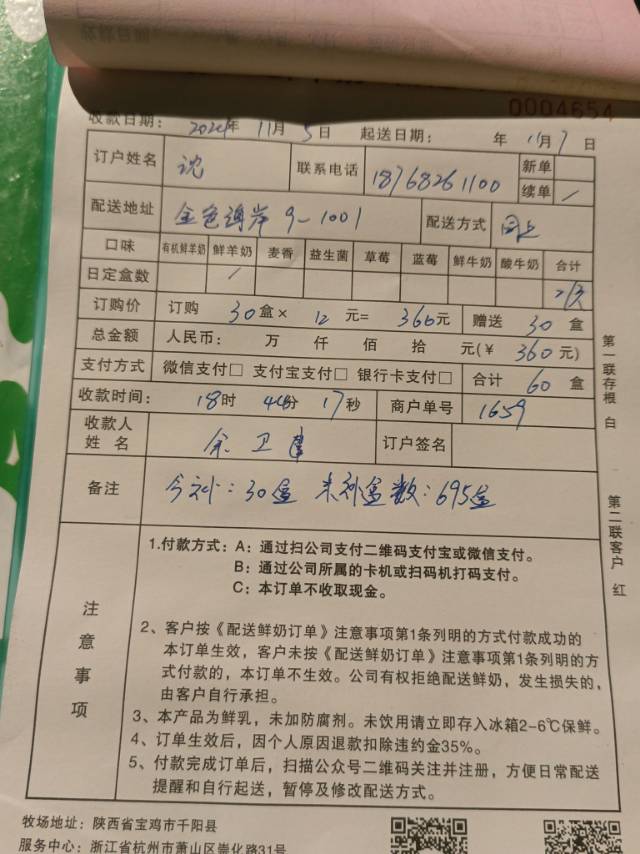 收款日期
0004654
收款日期： 2024年 11月 5日 起送日期： 年 11月 7日
订户姓名 沈 联系电话 18768261100 新单
续单 /
配送地址 金色海岸 9-1001 配送方式 同上
口味 有机鲜羊奶 鲜羊奶 麦香 益生菌 草莓 蓝莓 鲜牛奶 酸牛奶 合计
日定盒数 /
订购价 订购 30 盒× 12 元= 360元 赠送 30 盒
总金额 人民币： 万 仟 佰 拾 元(￥ 360元)
支付方式 微信支付□ 支付宝支付□ 银行卡支付□ 合计 60 盒
收款时间： 18时 44分 17秒 商户单号 1659
收款人姓名 余卫 订户签名
备注 今补：30盒 未补盒数：695盒
第一联存根 白
第二联客户 红
注意事项
1.付款方式：A：通过扫公司支付二维码支付宝或微信支付。
B：通过公司所属的卡机或扫码机打码支付。
C：本订单不收取现金。
2、客户按《配送鲜奶订单》注意事项第1条列明的方式付款成功的
本订单生效，客户未按《配送鲜奶订单》注意事项第1条列明的方
式付款的，本订单不生效。公司有权拒绝配送鲜奶，发生损失的，
由客户自行承担。
3、本产品为鲜乳，未加防腐剂。未饮用请立即存入冰箱2-6℃保鲜。
4、订单生效后，因个人原因退款扣除违约金35%。
5、付款完成订单后，扫描公众号二维码关注并注册，方便日常配送
提醒和自行起送，暂停及修改配送方式。
牧场地址：陕西省宝鸡市千阳县
服务中心：浙江省杭州市萧山区崇化路31号